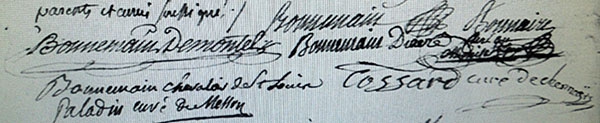 parents et amis soussignés /.
Bonnemain Bonnaire
Bonnemain Demontelz Bonnemain Duiré
Bonnemain chevalier de St Louis Cossard curé de chennegÿ
Paladin curé de Messon